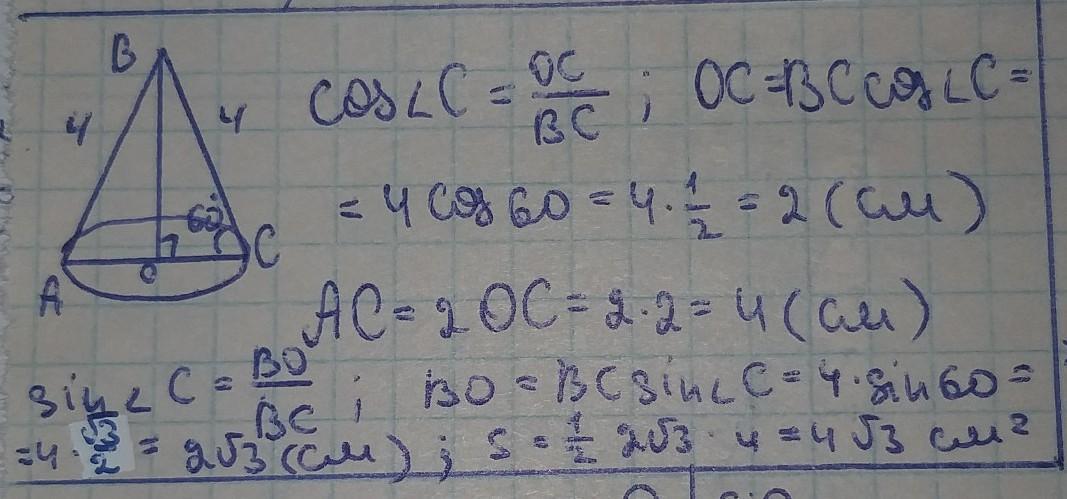 B
4 4
60°
A O C
cos∠C = OC/BC ; OC=BC cos∠C =
= 4 cos 60 = 4 · 1/2 = 2 (см)
AC = 2 OC = 2 · 2 = 4 (см)
sin∠C = BO/BC ; BO = BC sin∠C = 4 · sin 60 =
= 4 · √3/2 = 2√3 (см) ; S = 1/2 2√3 · 4 = 4√3 см²